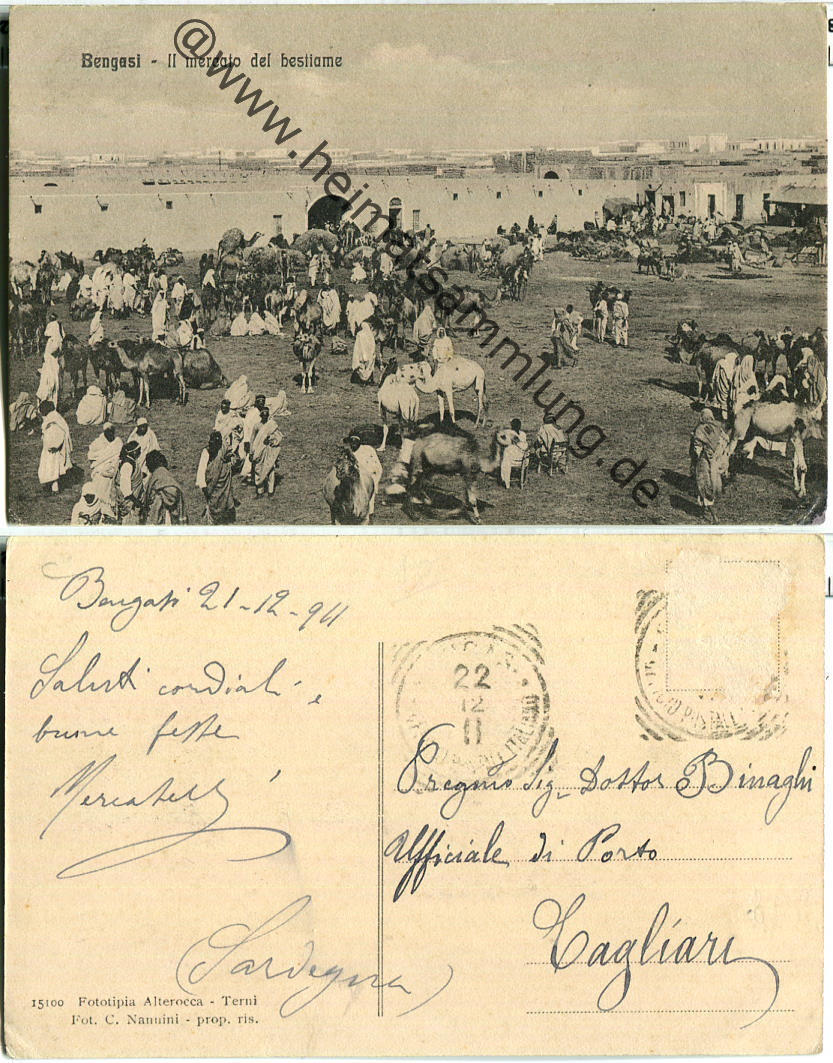 Bengasi - Il mercato del bestiame
@www.heimatsammlung.de
Bengasi 21-12-911
Saluti cordiali e
buone feste
Mercatelli
(Sardegna)
15100 Fototipia Alterocca - Terni
Fot. C. Nannini - prop. ris.
22
12
11
Pregmo Sig. Dottor Binaghi
Ufficiale di Porto
Cagliari